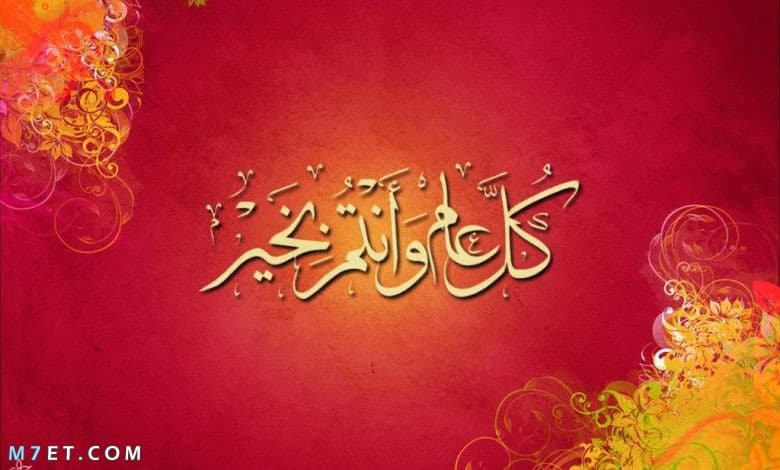 كُلَّ عام وَأَنْتُمْ بِخَيْر
M7ET.COM